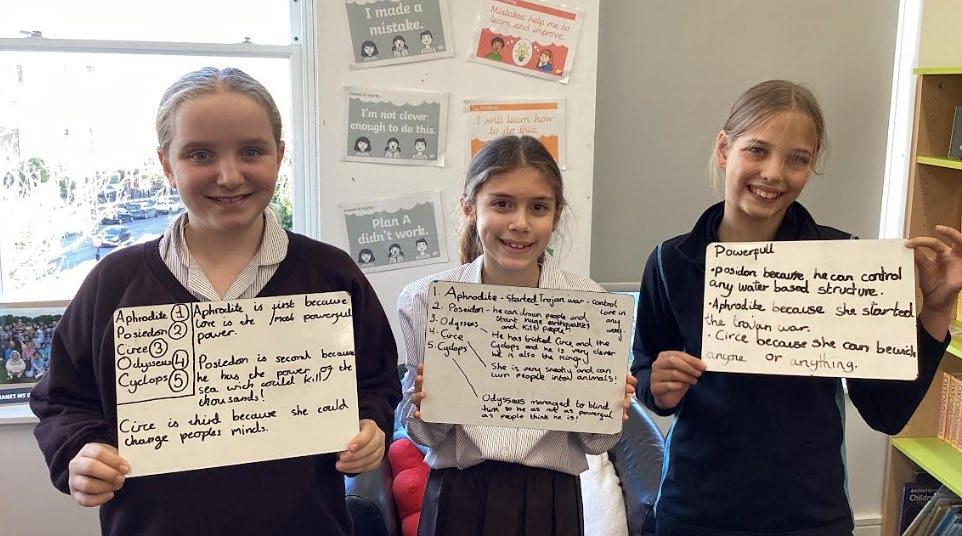 I made a
mistake.
Mistakes help me to
learn and improve
Instead of saying...
I'm not clever
enough to do this.
I will learn how
to do this.
Plan A
didn't work.
Aphrodite 1
Posiedon 2
Circe 3
Odysseus 4
Cyclops 5
Aphrodite is first because
love is the most powerful
power.
Posiedon is second because
he has the power of the
sea wich could kill
thousands!
Circe is third because she could
change peoples minds.
1. Aphrodite - Started Trojan war - control
love in any way
2. Poseidon - he can drown people and
start huge earthquakes
and kill people!
3. Odysseus
He has tricked Circe and the
Cyclops and he is very clever
He is also the King!
4. Circe
She is very sneaky and can
turn people into animals!
5. Cyclops
Odysseus managed to blind
him so he as not as powerful
as people think he is!
Powerfull
• posidon because he can control
any water based structure.
• Aphrodite because she started
the trojan war.
• Circe because she can bewich
anyone or anything.